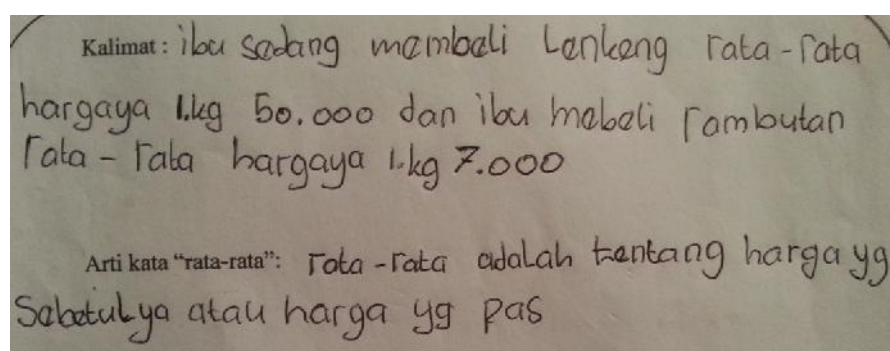 Kalimat : ibu sedang membeli Lenkeng rata-rata
hargaya 1.kg 50.000 dan ibu mebeli rambutan
rata - rata hargaya 1.kg 7.000
Arti kata “rata-rata”: rata-rata adalah tentang harga yg
Sebetulya atau harga yg pas